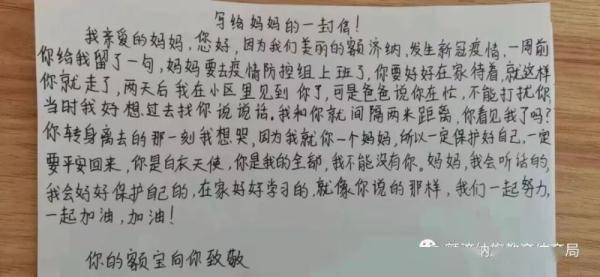 写给妈妈的一封信!
我亲爱的妈妈,您好,因为我们美丽的额济纳,发生新冠疫情,一周前
你给我留了一句,妈妈要去疫情防控组上班了,你要好好在家待着,就这样
你就走了,两天后我在小区里见到你了,可是爸爸说你在忙,不能打扰你
当时我好想过去找你说说话。我和你就间隔两米距离,你看见我了吗?
你转身离去的那一刻我想哭,因为我就你一个妈妈,所以一定保护好自己,一定
要平安回来,你是白衣天使,你是我的全部,我不能没有你。妈妈,我会听话的,
我会好好保护自己的,在家好好学习的,就像你说的那样,我们一起努力,
一起加油,加油!
你的额宝向你致敬
额济纳旗教育体育局